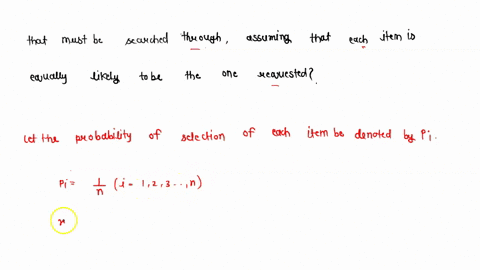 that must be searched through, assuming that each item is
equally likely to be the one requested?
Let the probability of selection of each item be denoted by Pi.
Pi = 1/n (i = 1, 2, 3 .., n)